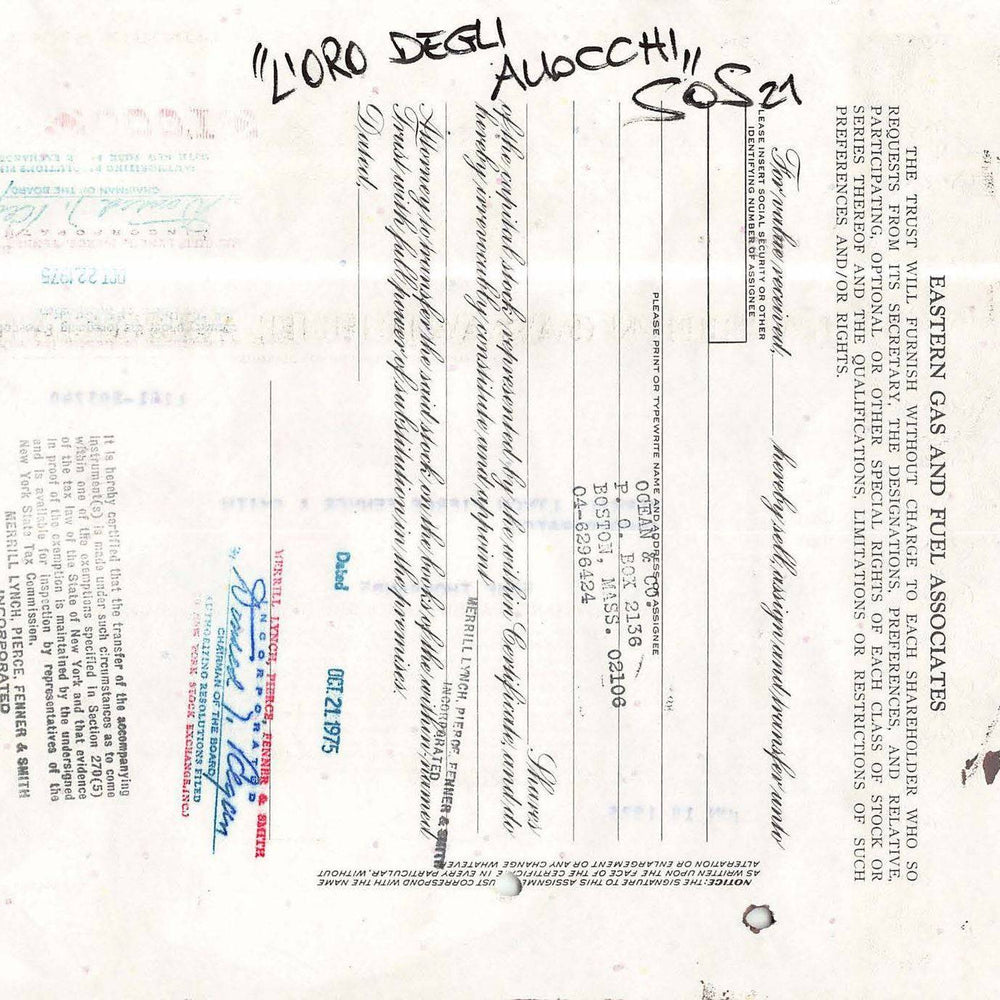 "L'ORO DEGLI
ALLOCCHI"
SOS 21
EASTERN GAS AND FUEL ASSOCIATES
THE TRUST WILL FURNISH WITHOUT CHARGE TO EACH SHAREHOLDER WHO SO
REQUESTS FROM ITS SECRETARY, THE DESIGNATIONS, PREFERENCES, AND RELATIVE,
PARTICIPATING, OPTIONAL OR OTHER SPECIAL RIGHTS OF EACH CLASS OF STOCK OR
SERIES THEREOF AND THE QUALIFICATIONS, LIMITATIONS OR RESTRICTIONS OF SUCH
PREFERENCES AND/OR RIGHTS.
For value received, hereby sell, assign and transfer unto
PLEASE INSERT SOCIAL SECURITY OR OTHER
IDENTIFYING NUMBER OF ASSIGNEE
PLEASE PRINT OR TYPEWRITE NAME AND ADDRESS OF ASSIGNEE
OCEAN & CO.
P. O. BOX 2136
BOSTON, MASS. 02106
04-6296424
Shares
of the capital stock represented by the within Certificate, and do
hereby irrevocably constitute and appoint
MERRILL LYNCH, PIERCE, FENNER & SMITH
INCORPORATED
Attorney to transfer the said stock on the books of the within-named
Trust with full power of substitution in the premises.
Dated,
Dated OCT 21 1975
MERRILL LYNCH, PIERCE, FENNER & SMITH
INCORPORATED
Donald T. Regan
CHAIRMAN OF THE BOARD
AUTHORIZING RESOLUTIONS FILED
NEW YORK STOCK EXCHANGE, INC.
NOTICE: THE SIGNATURE TO THIS ASSIGNMENT MUST CORRESPOND WITH THE NAME
AS WRITTEN UPON THE FACE OF THE CERTIFICATE IN EVERY PARTICULAR, WITHOUT
ALTERATION OR ENLARGEMENT OR ANY CHANGE WHATEVER.
It is hereby certified that the transfer of the accompanying
instrument(s) is made under such circumstances as to come
within one of the exemptions specified in Section 270(5)
of the tax law of the State of New York and that evidence
in proof of the exemption is maintained by the undersigned
and is available for inspection by representatives of the
New York State Tax Commission.
MERRILL LYNCH, PIERCE, FENNER & SMITH
INCORPORATED
OCT 22 1975
CHAIRMAN OF THE BOARD